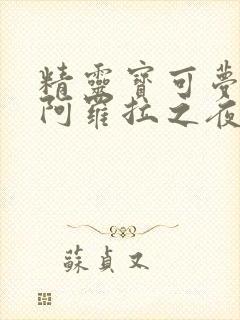 精靈寶可夢
阿羅拉之夜
蘇貞又